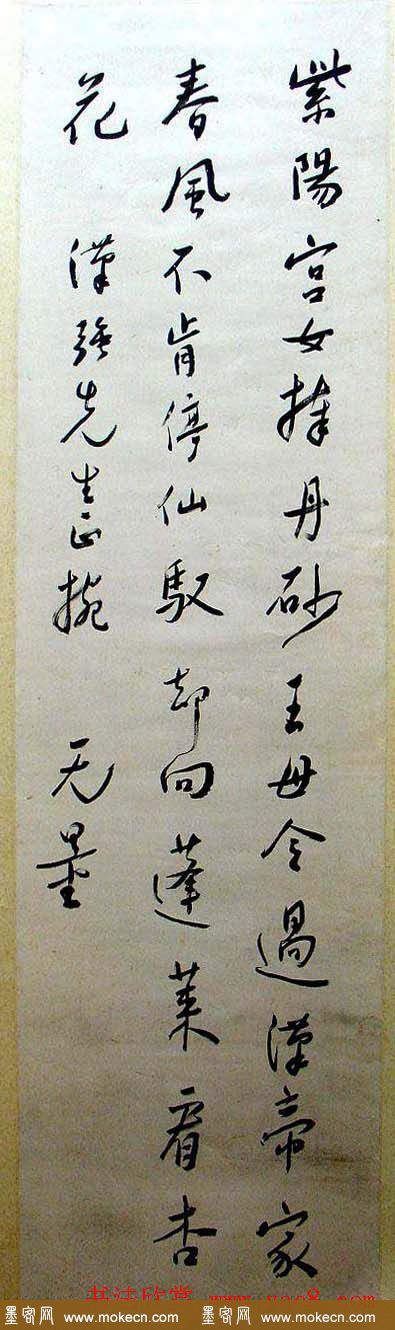 紫陽宫女捧丹砂王母令過漢帝家
春風不肯停仙馭却向蓬莱看杏
花 漢強先生正腕 无量
书法欣赏 www.yac8.com
墨客网 www.mokecn.com 墨客网 www.mokecn.com